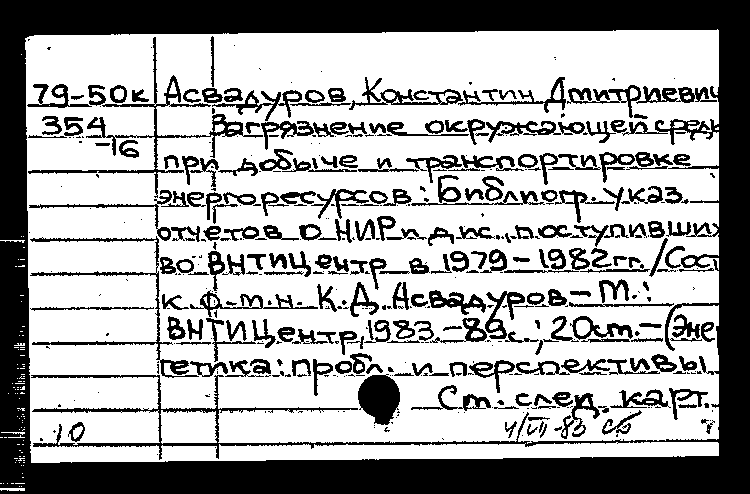 79-50к Асвадуров, Константин Дмитриевич
354 Загрязнение окружающей среды
-16
при добыче и транспортировке
энергоресурсов: Библиогр. указ.
отчетов о НИР и дис., поступивших
во ВНТИЦентр в 1979-1982 гг. / Сост
к.ф.-м.н. К.Д. Асвадуров - М.:
ВНТИЦентр, 1983. - 89с.; 20см. - (Энер
гетика: пробл. и перспективы
Ст. след. карт.
10 4/VII-83